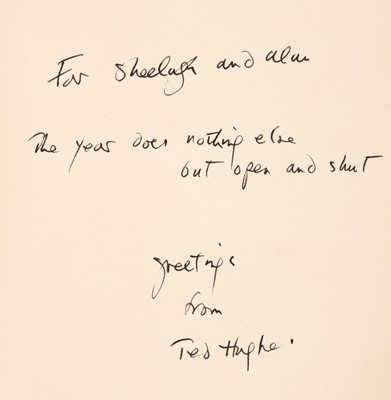 For Sheelagh and Alan
The year does nothing else
but open and shut
greetings
from
Ted Hughes.